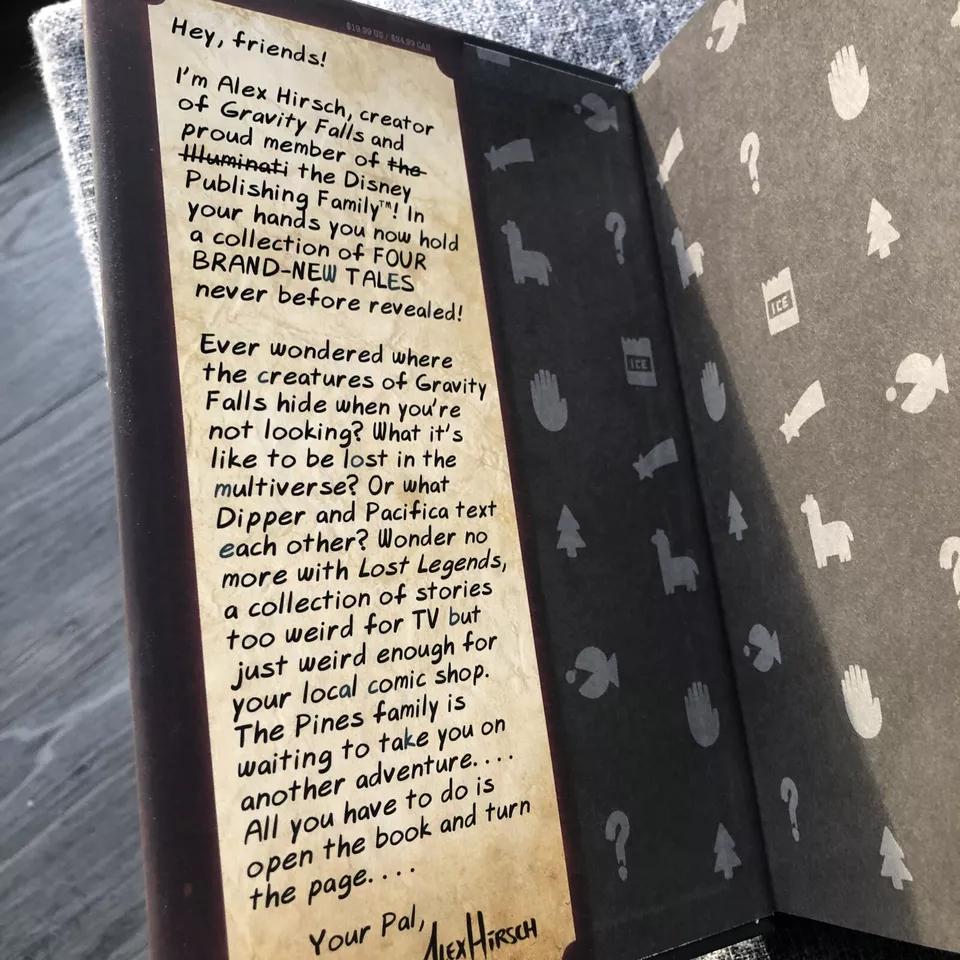 $19.99 US / $24.99 CAN
Hey, friends!
I'm Alex Hirsch, creator
of Gravity Falls and
proud member of the
Illuminati the Disney
Publishing Family™! In
your hands you now hold
a collection of FOUR
BRAND-NEW TALES
never before revealed!
Ever wondered where
the creatures of Gravity
Falls hide when you're
not looking? What it's
like to be lost in the
multiverse? Or what
Dipper and Pacifica text
each other? Wonder no
more with Lost Legends,
a collection of stories
too weird for TV but
just weird enough for
your local comic shop.
The Pines family is
waiting to take you on
another adventure....
All you have to do is
open the book and turn
the page....
Your Pal,
ALEX HIRSCH
ICE
ICE